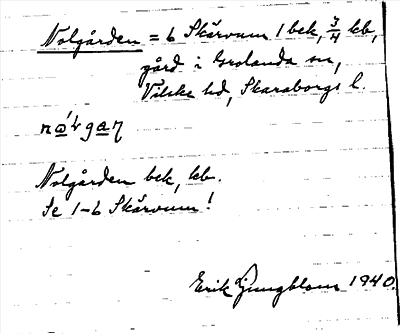 Nolgården = 6 Skärvum 1 bek, 3/4 kb,
gård i Grolanda sn,
Vilske hd, Skaraborgs l.
Nolgården bek, kb.
Se 1-6 Skärvum!
Erik Ljungblom 1940.